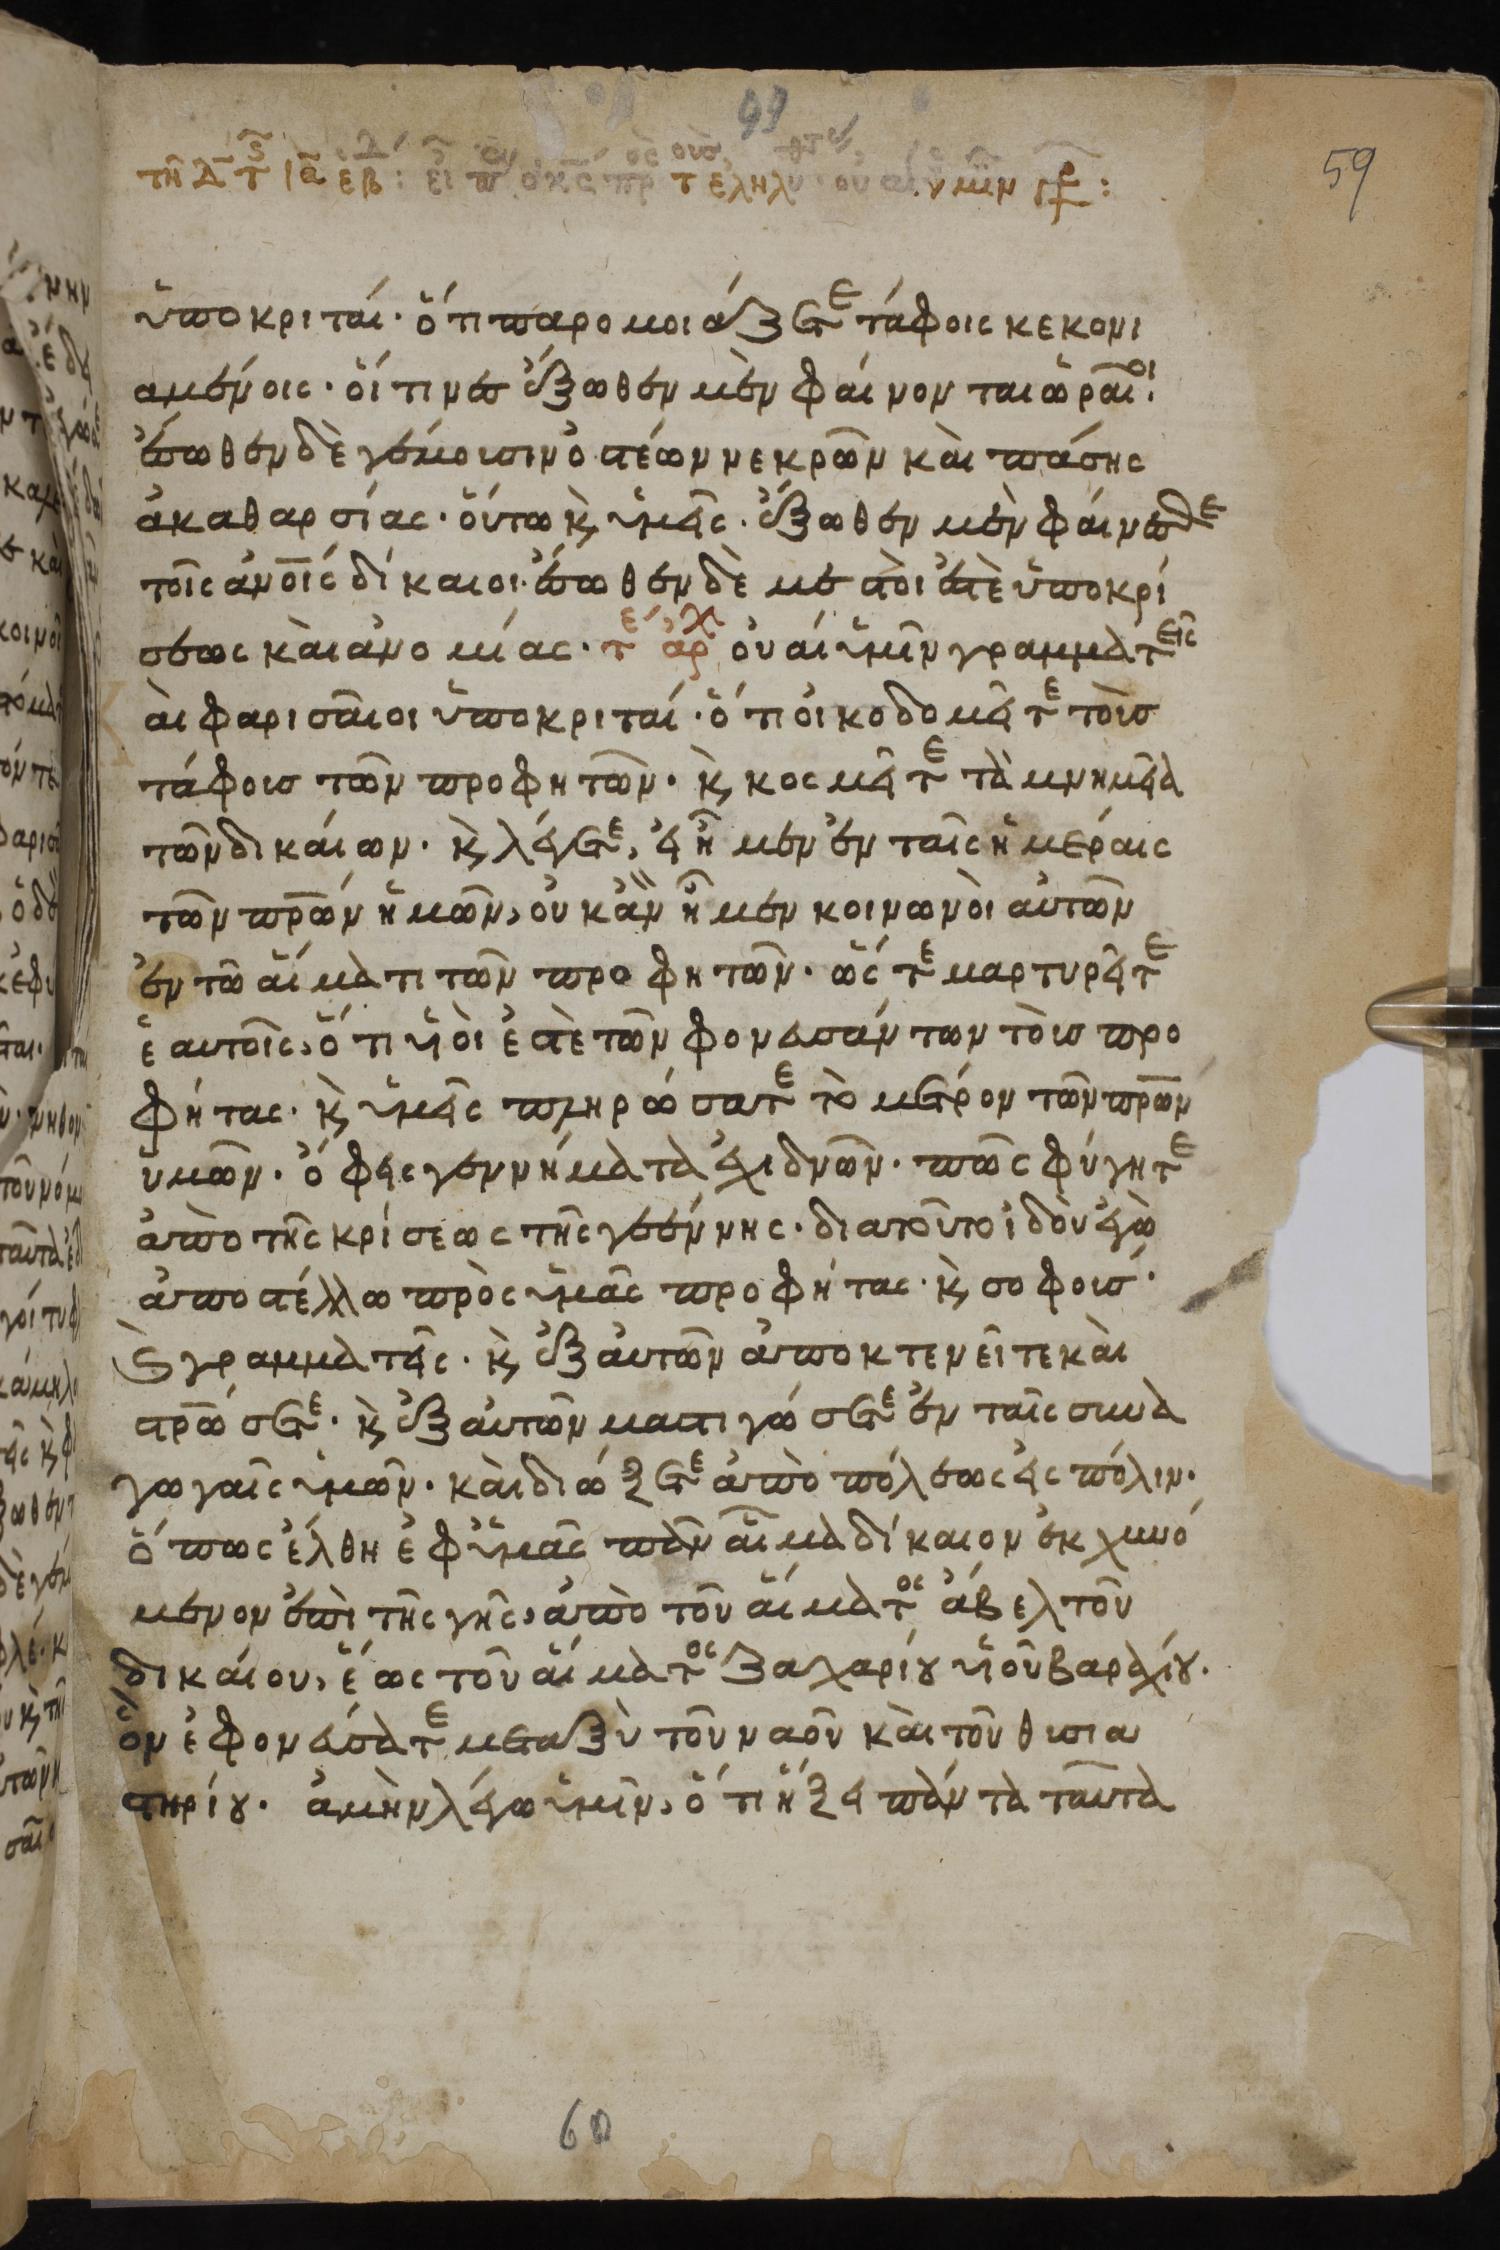 59
ὑποκριταί· ὅτι παρομοιάζετε τάφοις κεκονι
αμένοις· οἵτινες ἔξωθεν μὲν φαίνονται ὡραῖοι·
ἔσωθεν δὲ γέμουσιν ὀστέων νεκρῶν καὶ πάσης
ἀκαθαρσίας· οὕτω κ̀ ὑμεῖς· ἔξωθεν μὲν φαίνεσθε
τοῖς ἀνοις δίκαιοι· ἔσωθεν δὲ μεστοὶ ἐστὲ ὑποκρί
σεως καὶ ἀνομίας· τε ἀρχ οὐαὶ ὑμῖν γραμματεῖς
αι φαρισαῖοι ὑποκριταί· ὅτι οἰκοδομεῖτε τοὺς
τάφους τῶν προφητῶν· κ̀ κοσμεῖτε τὰ μνημεῖα
τῶν δικαίων· κ̀ λέγετε, εἰ ἦμεν ἐν ταῖς ἡμέραις
τῶν πρων ἡμῶν, οὐκ ἂν ἦμεν κοινωνοὶ αὐτῶν
ἐν τῶ αἵματι τῶν προφητῶν· ὥστε μαρτυρεῖτε
ἑαυτοῖς, ὅτι υἱοὶ ἐστὲ τῶν φονευσάντων τοὺς προ
φήτας· κ̀ ὑμεῖς πληρώσατε τὸ μέτρον τῶν πρων
ὑμῶν· ὄφεις γεννήματα ἐχιδνῶν· πῶς φύγητε
ἀπὸ τῆς κρίσεως τῆς γεέννης· διατοῦτο ἰδοὺ ἐγὼ
ἀποστέλλω πρὸς ὑμᾶς προφήτας· κ̀ σοφούς·
κ̀ γραμματεῖς· κ̀ ἐξ αὐτῶν ἀποκτενεῖτε καὶ
στρώσετε· κ̀ ἐξ αὐτῶν μαστιγώσετε ἐν ταῖς συνα
γωγαῖς ὑμῶν· καὶ διώξετε ἀπὸ πόλεως εἰς πόλιν·
ὅπως ἔλθη ἐφ' ὑμᾶς πᾶν αἷμα δίκαιον ἐκχυνό
μενον ἐπὶ τῆς γῆς, ἀπὸ τοῦ αἵματος ἄβελ τοῦ
δικαίου, ἕως τοῦ αἵματος ζαχαρίου υἱοῦ βαραχίου·
ὃν ἐφονεύσατε μεταξὺ τοῦ ναοῦ καὶ τοῦ θυσια
στηρίου· ἀμὴν λέγω ὑμῖν, ὅτι ἥξει πάντα ταῦτα
60